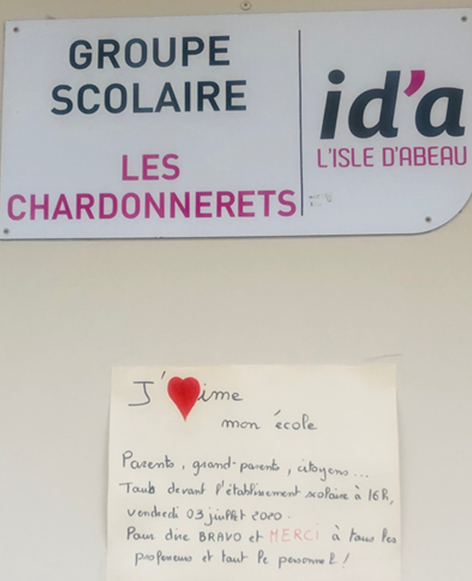 GROUPE
SCOLAIRE
LES
CHARDONNERETS
id'a
L'ISLE D'ABEAU
J'❤ime
mon école
Parents, grand-parents, citoyens...
Tous devant l'établissement scolaire à 16h,
vendredi 03 juillet 2020.
Pour dire BRAVO et MERCI à tous les
professeurs et tout le personnel!